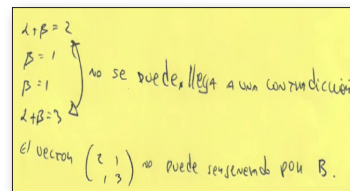 α+β=2
β=1
β=1 no se puede, llega a una contradicción
α+β=3
El vector (2 1
1 3) no puede ser generado por B.